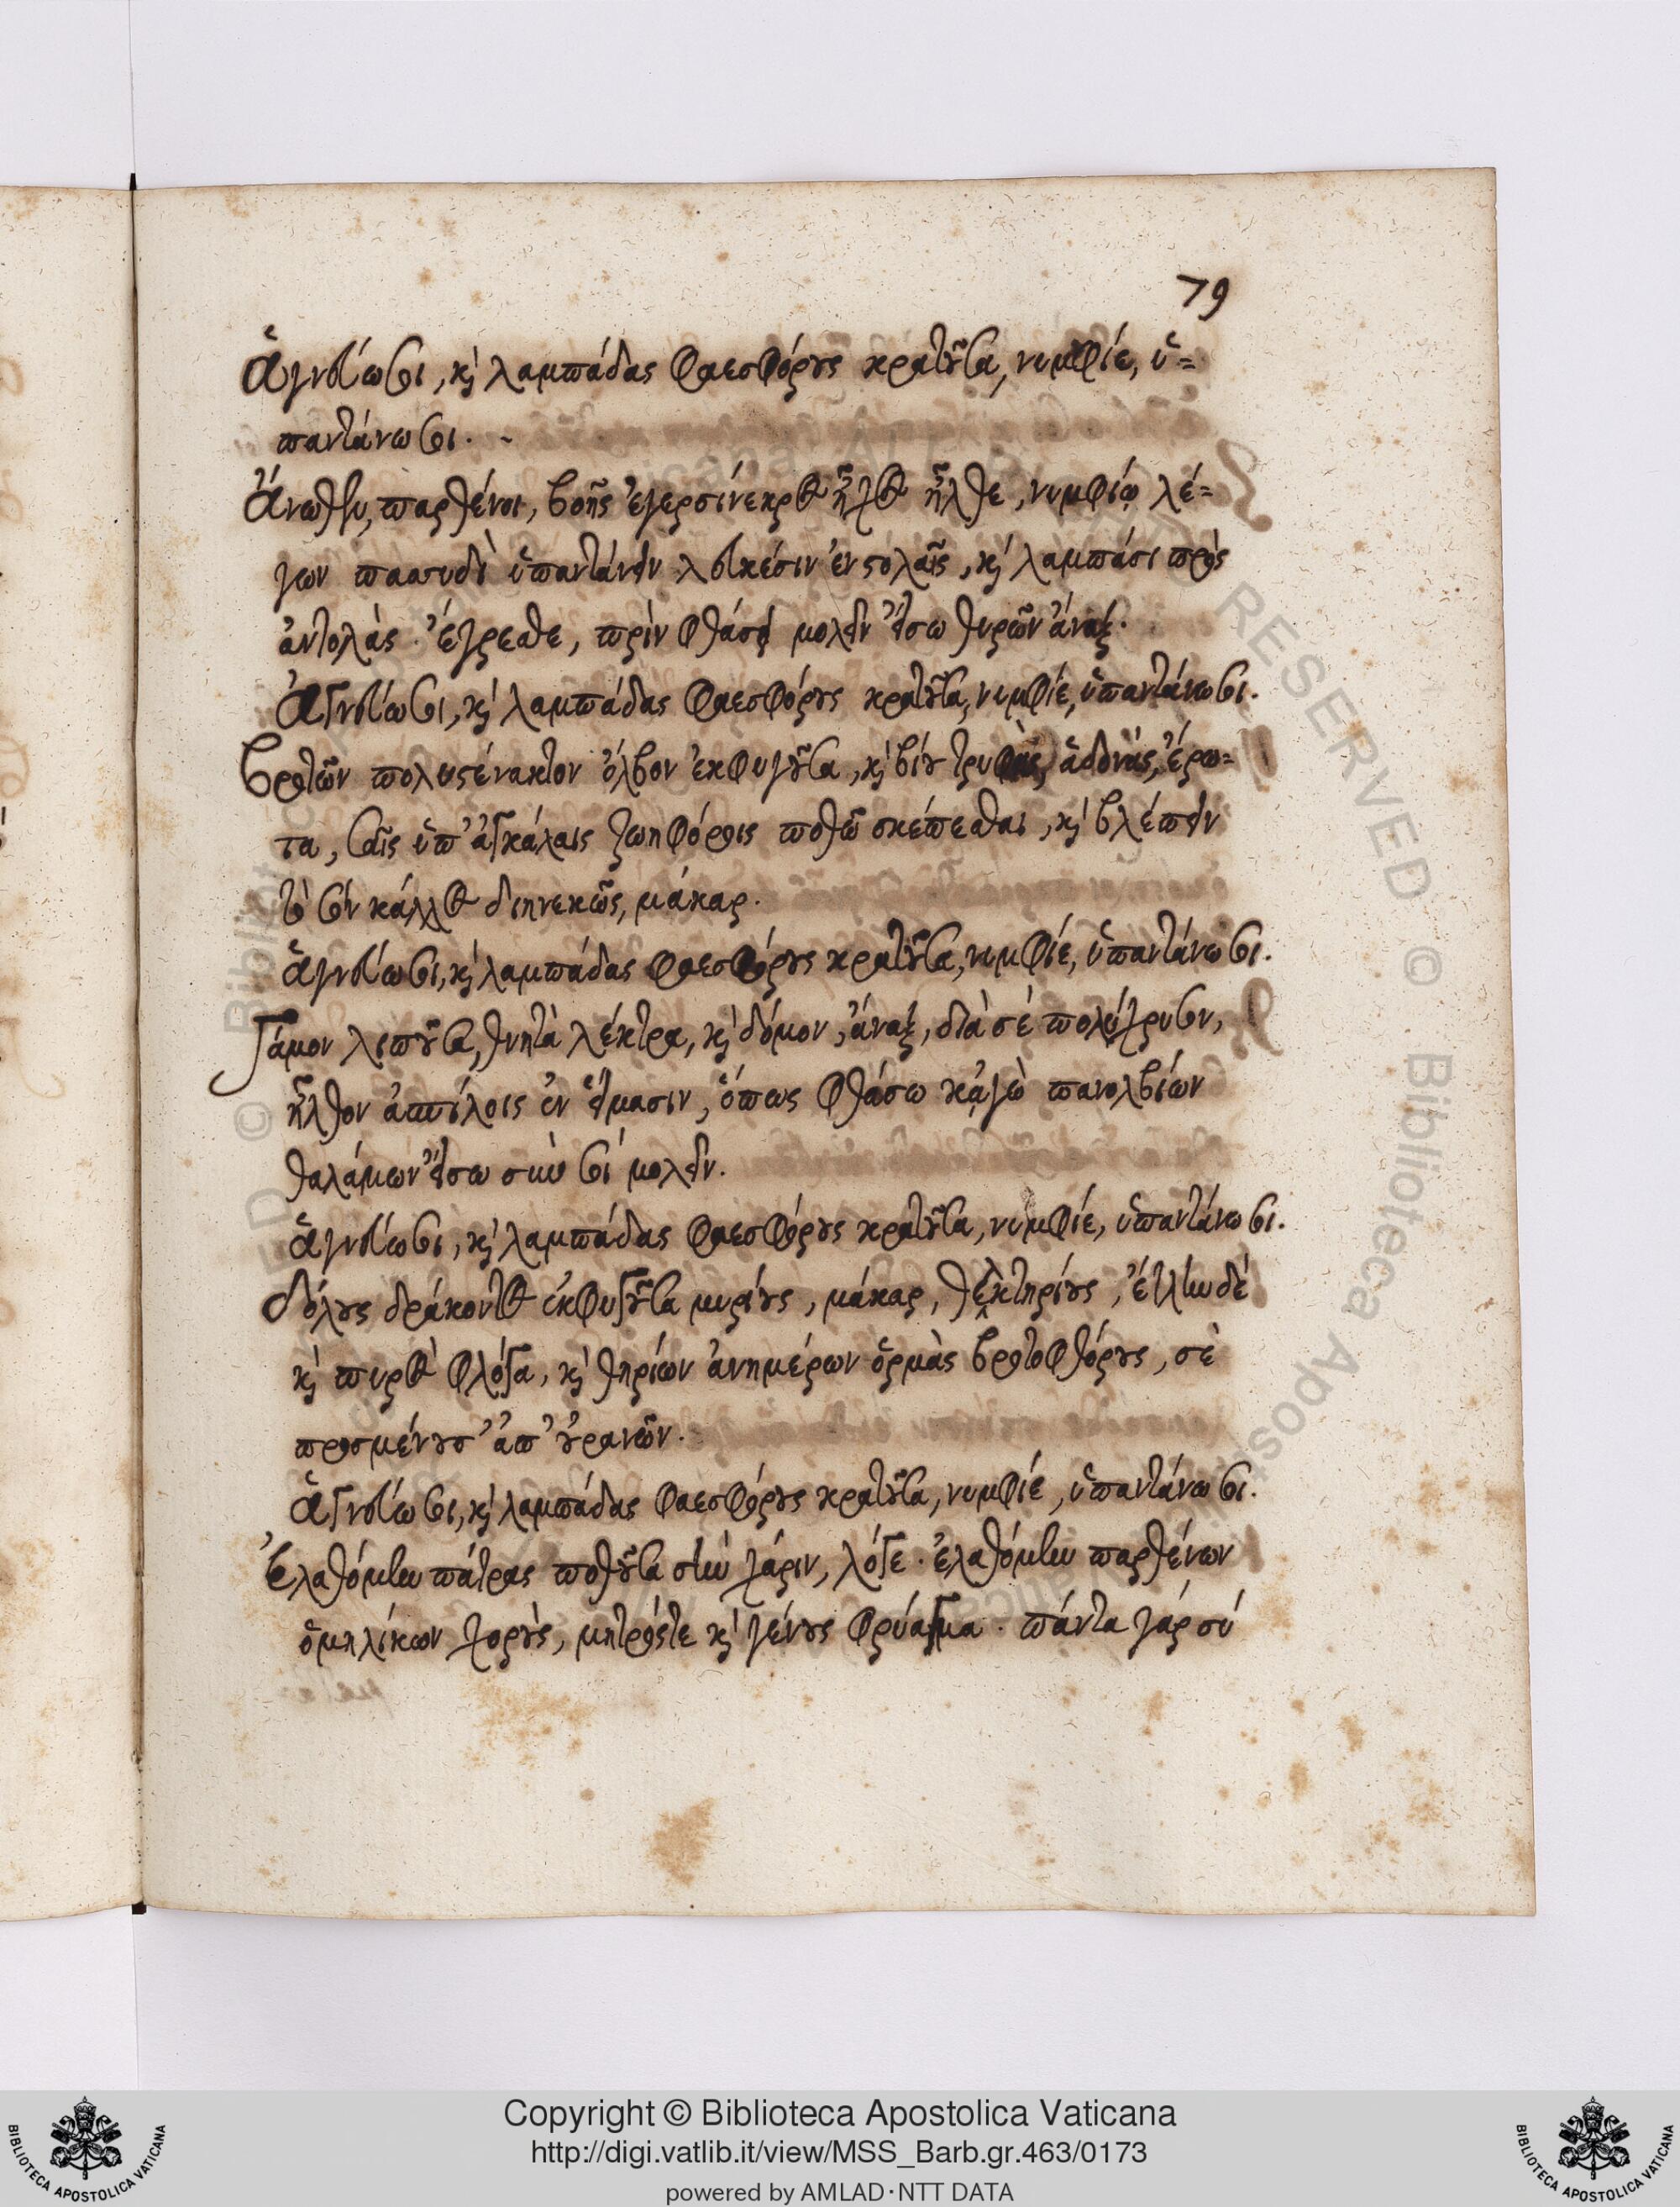 79
Ἁγνεύω σοι, καὶ λαμπάδας φαεσφόρους κρατοῦσα, νυμφίε, ὑ=
παντάνω σοι.
Ἄνωθεν, παρθένοι, βοῆς ἐγερσίνεκρος ἦχος ἦλθε, νυμφίῳ λέ=
γων πασσυδὶ ὑπαντάνειν λευκέσιν ἐν στολαῖς, καὶ λαμπάσι πρὸς
ἀντολάς. ἔγρεσθε, πρὶν φθάσῃ μολεῖν εἴσω θυρῶν ἄναξ.
Ἁγνεύω σοι, καὶ λαμπάδας φαεσφόρους κρατοῦσα, νυμφίε, ὑπαντάνω σοι.
Βροτῶν πολυστένακτον ὄλβον ἐκφυγοῦσα, καὶ βίου τρυφᾶς ἁδονάς, ἔρω=
τα, σαῖς ὑπ' ἀγκάλαις ζωηφόροις ποθῶ σκέπεσθαι, καὶ βλέπειν
τὸ σὸν κάλλος διηνεκῶς, μάκαρ.
Ἁγνεύω σοι, καὶ λαμπάδας φαεσφόρους κρατοῦσα, νυμφίε, ὑπαντάνω σοι.
Γάμον λιποῦσα, θνητὰ λέκτρα, καὶ δόμον, ἄναξ, διὰ σὲ πολύχρυσον,
ἦλθον ἀσπίλοις ἐν εἵμασιν, ὅπως φθάσω κᾀγὼ πανολβίων
θαλάμων εἴσω σὺν σοὶ μολεῖν.
Ἁγνεύω σοι, καὶ λαμπάδας φαεσφόρους κρατοῦσα, νυμφίε, ὑπαντάνω σοι.
Δόλους δράκοντος ἐκφυγοῦσα μυρίους, μάκαρ, θελκτηρίους, ἔτλην δὲ
καὶ πυρὸς φλόγα, καὶ θηρίων ἀνημέρων ὁρμὰς βροτοφθόρους, σὲ
προσμένουσ' ἀπ' οὐρανῶν.
Ἁγνεύω σοι, καὶ λαμπάδας φαεσφόρους κρατοῦσα, νυμφίε, ὑπαντάνω σοι.
Ἐλαθόμην πάτρας ποθοῦσα σὴν χάριν, λόγε. ἐλαθόμην παρθένων
ὁμηλίκων χορούς, μητρός τε καὶ γένους φρύαγμα. πάντα γάρ σύ
Copyright © Biblioteca Apostolica Vaticana
http://digi.vatlib.it/view/MSS_Barb.gr.463/0173
powered by AMLAD·NTT DATA
BIBLIOTECA APOSTOLICA VATICANA
BIBLIOTECA APOSTOLICA VATICANA